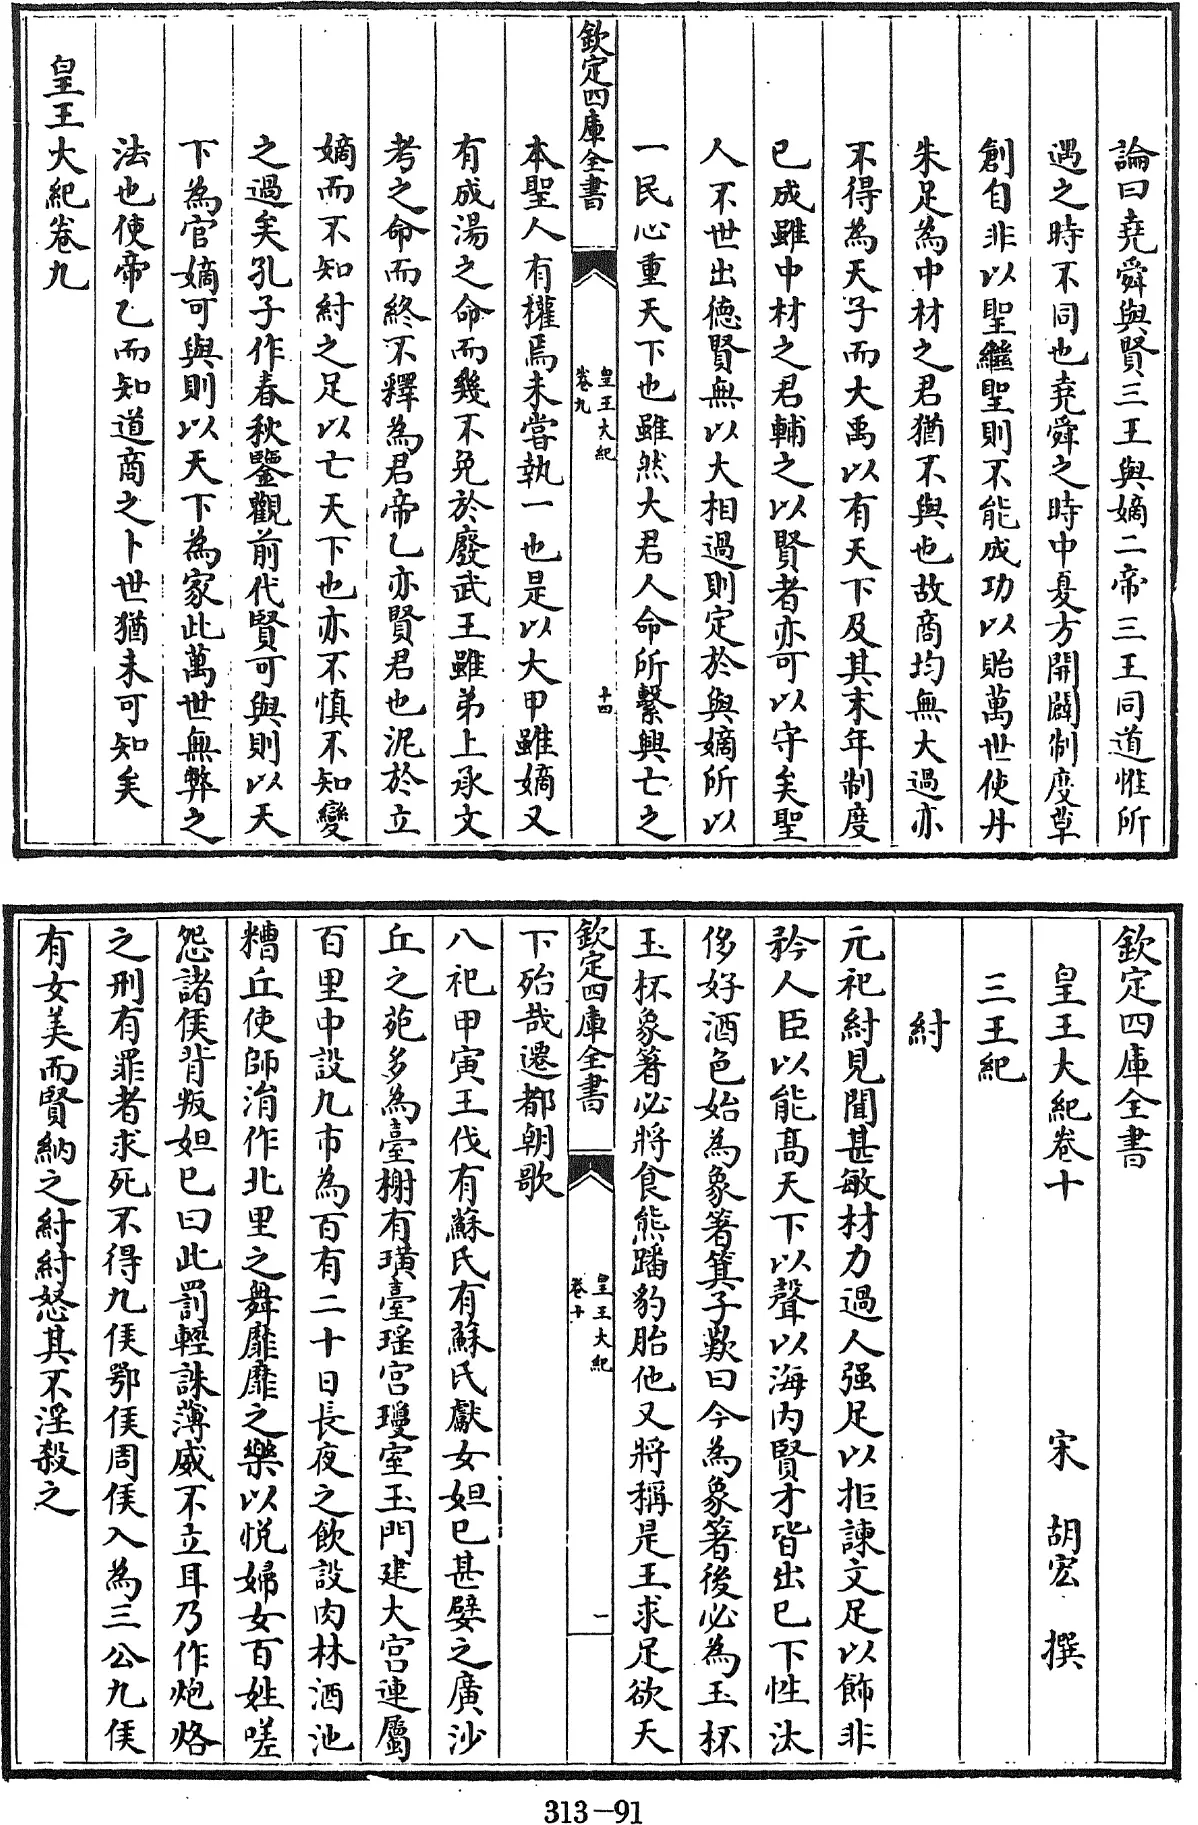 論曰堯舜與賢三王與嫡二帝三王同道惟所
遇之時不同也堯舜之時中夏方開闢制度草
創自非以聖繼聖則不能成功以貽萬世使丹
朱足為中材之君猶不與也故商均無大過亦
不得為天子而大禹以有天下及其末年制度
已成雖中材之君輔之以賢者亦可以守矣聖
人不世出德賢無以大相過則定於與嫡所以
一民心重天下也雖然大君人命所繫興亡之
欽定四庫全書
皇王大紀
卷九
十四
本聖人有權焉未嘗執一也是以大甲雖嫡又
有成湯之命而幾不免於廢武王雖弟上承文
考之命而終不釋為君帝乙亦賢君也泥於立
嫡而不知紂之足以亡天下也亦不慎不知變
之過矣孔子作春秋鑒觀前代賢可與則以天
下為官嫡可與則以天下為家此萬世無弊之
法也使帝乙而知道商之卜世猶未可知矣
皇王大紀卷九
欽定四庫全書
皇王大紀卷十
宋 胡宏 撰
三王紀
紂
元祀紂見聞甚敏材力過人强足以拒諫文足以飾非
矜人臣以能高天下以聲以海內賢才皆出已下性汰
侈好酒色始為象箸箕子歎曰今為象箸後必為玉杯
玉杯象箸必將食熊蹯豹胎他又將稱是王求足欲天
欽定四庫全書
皇王大紀
卷十
一
下殆哉遷都朝歌
八祀甲寅王伐有蘇氏有蘇氏獻女妲已甚嬖之廣沙
丘之苑多為臺榭有璜臺瑶宫瓊室玉門建大宫連屬
百里中設九市為百有二十日長夜之飲設肉林酒池
糟丘使師涓作北里之舞靡靡之樂以悅婦女百姓嗟
怨諸侯背叛妲已曰此罰輕誅薄威不立耳乃作炮烙
之刑有罪者求死不得九侯鄂侯周侯入為三公九侯
有女美而賢納之紂紂怒其不淫殺之
313-91